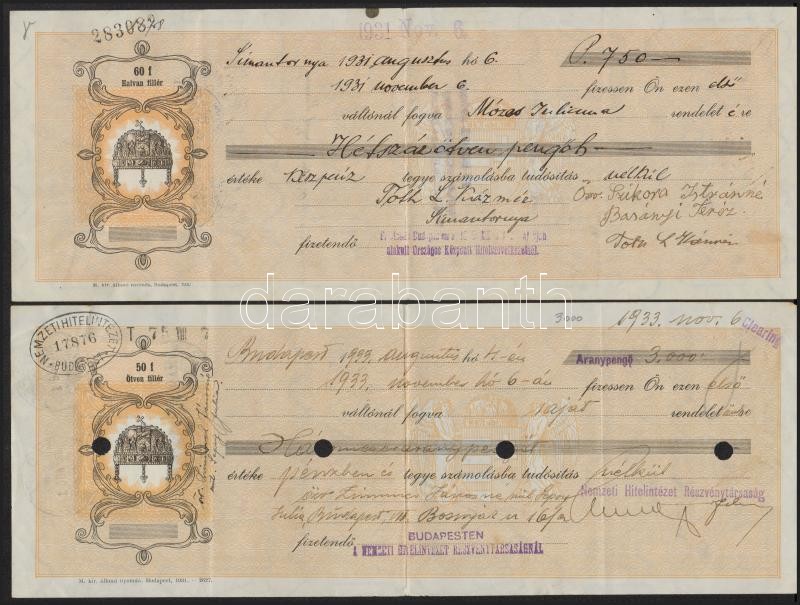 283082
1931 Nov. 6
60 f
Hatvan fillér
Simontornya 1931 augusztus hó 6. P. 750—
1931 november 6. fizessen Ön ezen első
váltónál fogva Mózes Julianna rendelet é re
Hétszázötven pengőt
értéke készpénz tegye számolásba tudósítás nélkül
Tóth L. Kázmér Özv. Szikora Istvánné
Simontornya Basanyi Teréz
Toth L Kázmér
fizetendő
alakult Országos Központi Hitelszövetkezetnél.
M. kir. állami nyomda, Budapest,
darabanth
3000 1933. nov. 6
Clearing
NEMZETI HITELINTÉZET
17876
BUDAPEST
T 75
50 f
Ötven fillér
Budapest 1933. augusztus hó 4-én Aranypengő 3.000.
1933. november hó 6-án fizessen Ön ezen első
váltónál fogva saját rendelet
értéke pénzben és tegye számolásba tudósítás nélkül
Nemzeti Hitelintézet Részvénytársaság
Julia Budapest, VII. Bosnyák u 16/a
BUDAPESTEN
fizetendő A NEMZETI HITELINTÉZET RÉSZVÉNYTÁRSASÁGNÁL
M. kir. állami nyomda, Budapest, 1931. — 2627.